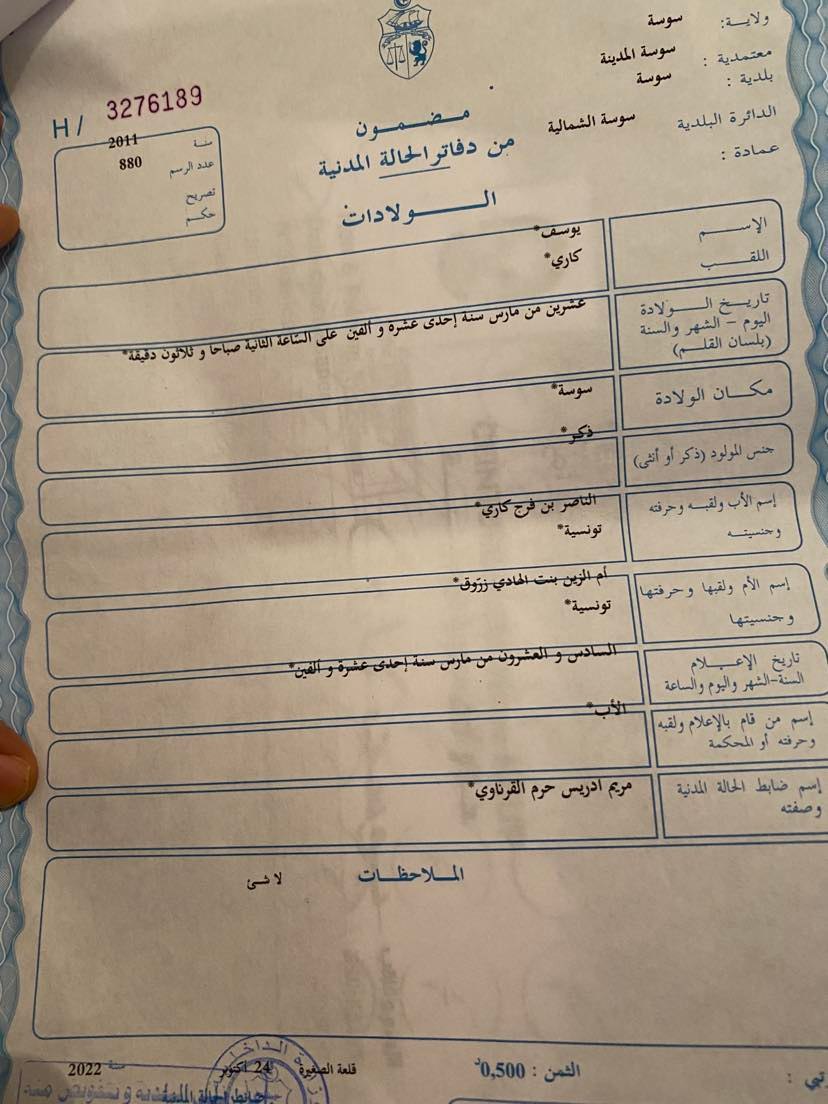 ولاية: سوسة
معتمدية : سوسة المدينة
بلدية : سوسة
الدائرة البلدية سوسة الشمالية
عمادة :
H/ 3276189
سنة 2011
عدد الرسم 880
تصريح
حكم
مضمون
من دفاتر الحالة المدنية
الولادات
الإسم يوسف*
اللقب كاري*
تاريخ الولادة
اليوم - الشهر والسنة
(بلسان القلم)
عشرين من مارس سنة إحدى عشرة و ألفين على الساعة الثانية صباحا و ثلاثون دقيقة*
مكان الولادة سوسة*
جنس المولود (ذكر أو أنثى) ذكر*
إسم الأب ولقبه وحرفته الناصر بن فرج كاري*
وجنسيته تونسية*
إسم الأم ولقبها وحرفتها أم الزين بنت الهادي زرّوق*
وجنسيتها تونسية*
تاريخ الإعلام السادس و العشرون من مارس سنة إحدى عشرة و ألفين*
السنة-الشهر واليوم والساعة
إسم من قام بالإعلام ولقبه الأب*
وحرفته أو المحكمة
إسم ضابط الحالة المدنية مريم ادريس حرم القرناوي*
وصفته
الملاحظات
لا شئ
الثمن : 0,500د
قلعة الصغيرة 24 أكتوبر سنة 2022